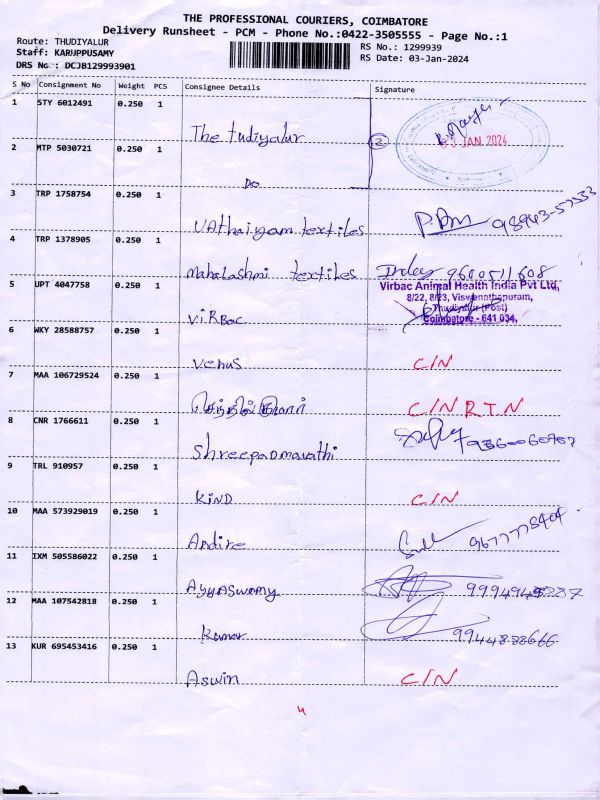 THE PROFESSIONAL COURIERS, COIMBATORE
Delivery Runsheet - PCM - Phone No.:0422-3505555 - Page No.:1
Route: THUDIYALUR
Staff: KARUPPUSAMY
DRS No : DCJB129993901
RS No.: 1299939
RS Date: 03-Jan-2024
S No Consignment No Weight PCS Consignee Details Signature
1 STY 6012491 0.250 1 The tudiyalur
2 JAN 2024
2 MTP 5030721 0.250 1 Do
3 TRP 1758754 0.250 1 VAthaiyam textiles
4 TRP 1378905 0.250 1 Mahalashmi textiles 9600511608
5 UPT 4047758 0.250 1 ViRBac
Virbac Animal Health India Pvt Ltd,
8/22, 8/23, Viswanathapuram,
Thudiyalur (Post)
Coimbatore - 641 034.
6 WKY 28588757 0.250 1 Venus C/N
7 MAA 106729524 0.250 1 செந்தில்குமார் C/N R.T.N
8 CNR 1766611 0.250 1 Shreepadmavathi
9 TRL 910957 0.250 1 KiND C/N
10 MAA 573929019 0.250 1 Andire
11 IXM 505586022 0.250 1 AyyASwamy
12 MAA 107542818 0.250 1 Kumar 9944888666
13 KUR 695453416 0.250 1 Aswin C/N
4